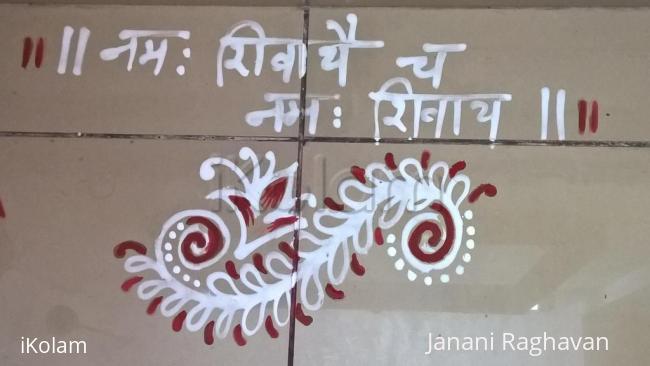 || || नमः शिवायै च
नमः शिवाय || ||
iKolam
iKolam
Janani Raghavan